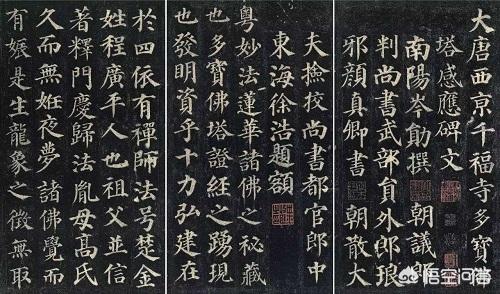 大唐西京千福寺多寶
塔感應碑文
南陽岑勛撰 朝議郎
判尚書武部員外郎琅
邪顏真卿書 朝散大
夫撿校尚書都官郎中
東海徐浩題額
粵妙法蓮華諸佛之秘藏
也多寶佛塔證經之踴現
也發明資乎十力弘建在
於四依有禪師法号楚金
姓程廣平人也祖父並信
著釋門慶歸法胤母高氏
久而無妊夜夢諸佛覺而
有娠是生龍象之徵無取
悟空问答